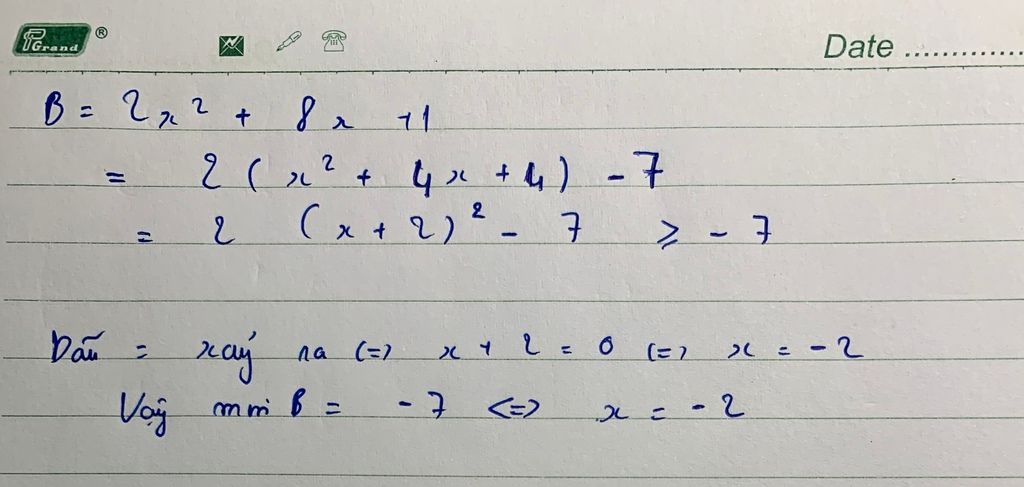 PGrand ® Date ............
B = 2x² + 8x +1
= 2 (x² + 4x + 4) - 7
= 2 (x + 2)² - 7 ≥ - 7
Dấu = xảy ra (=) x + 2 = 0 (=) x = -2
Vậy min B = - 7 <=> x = - 2